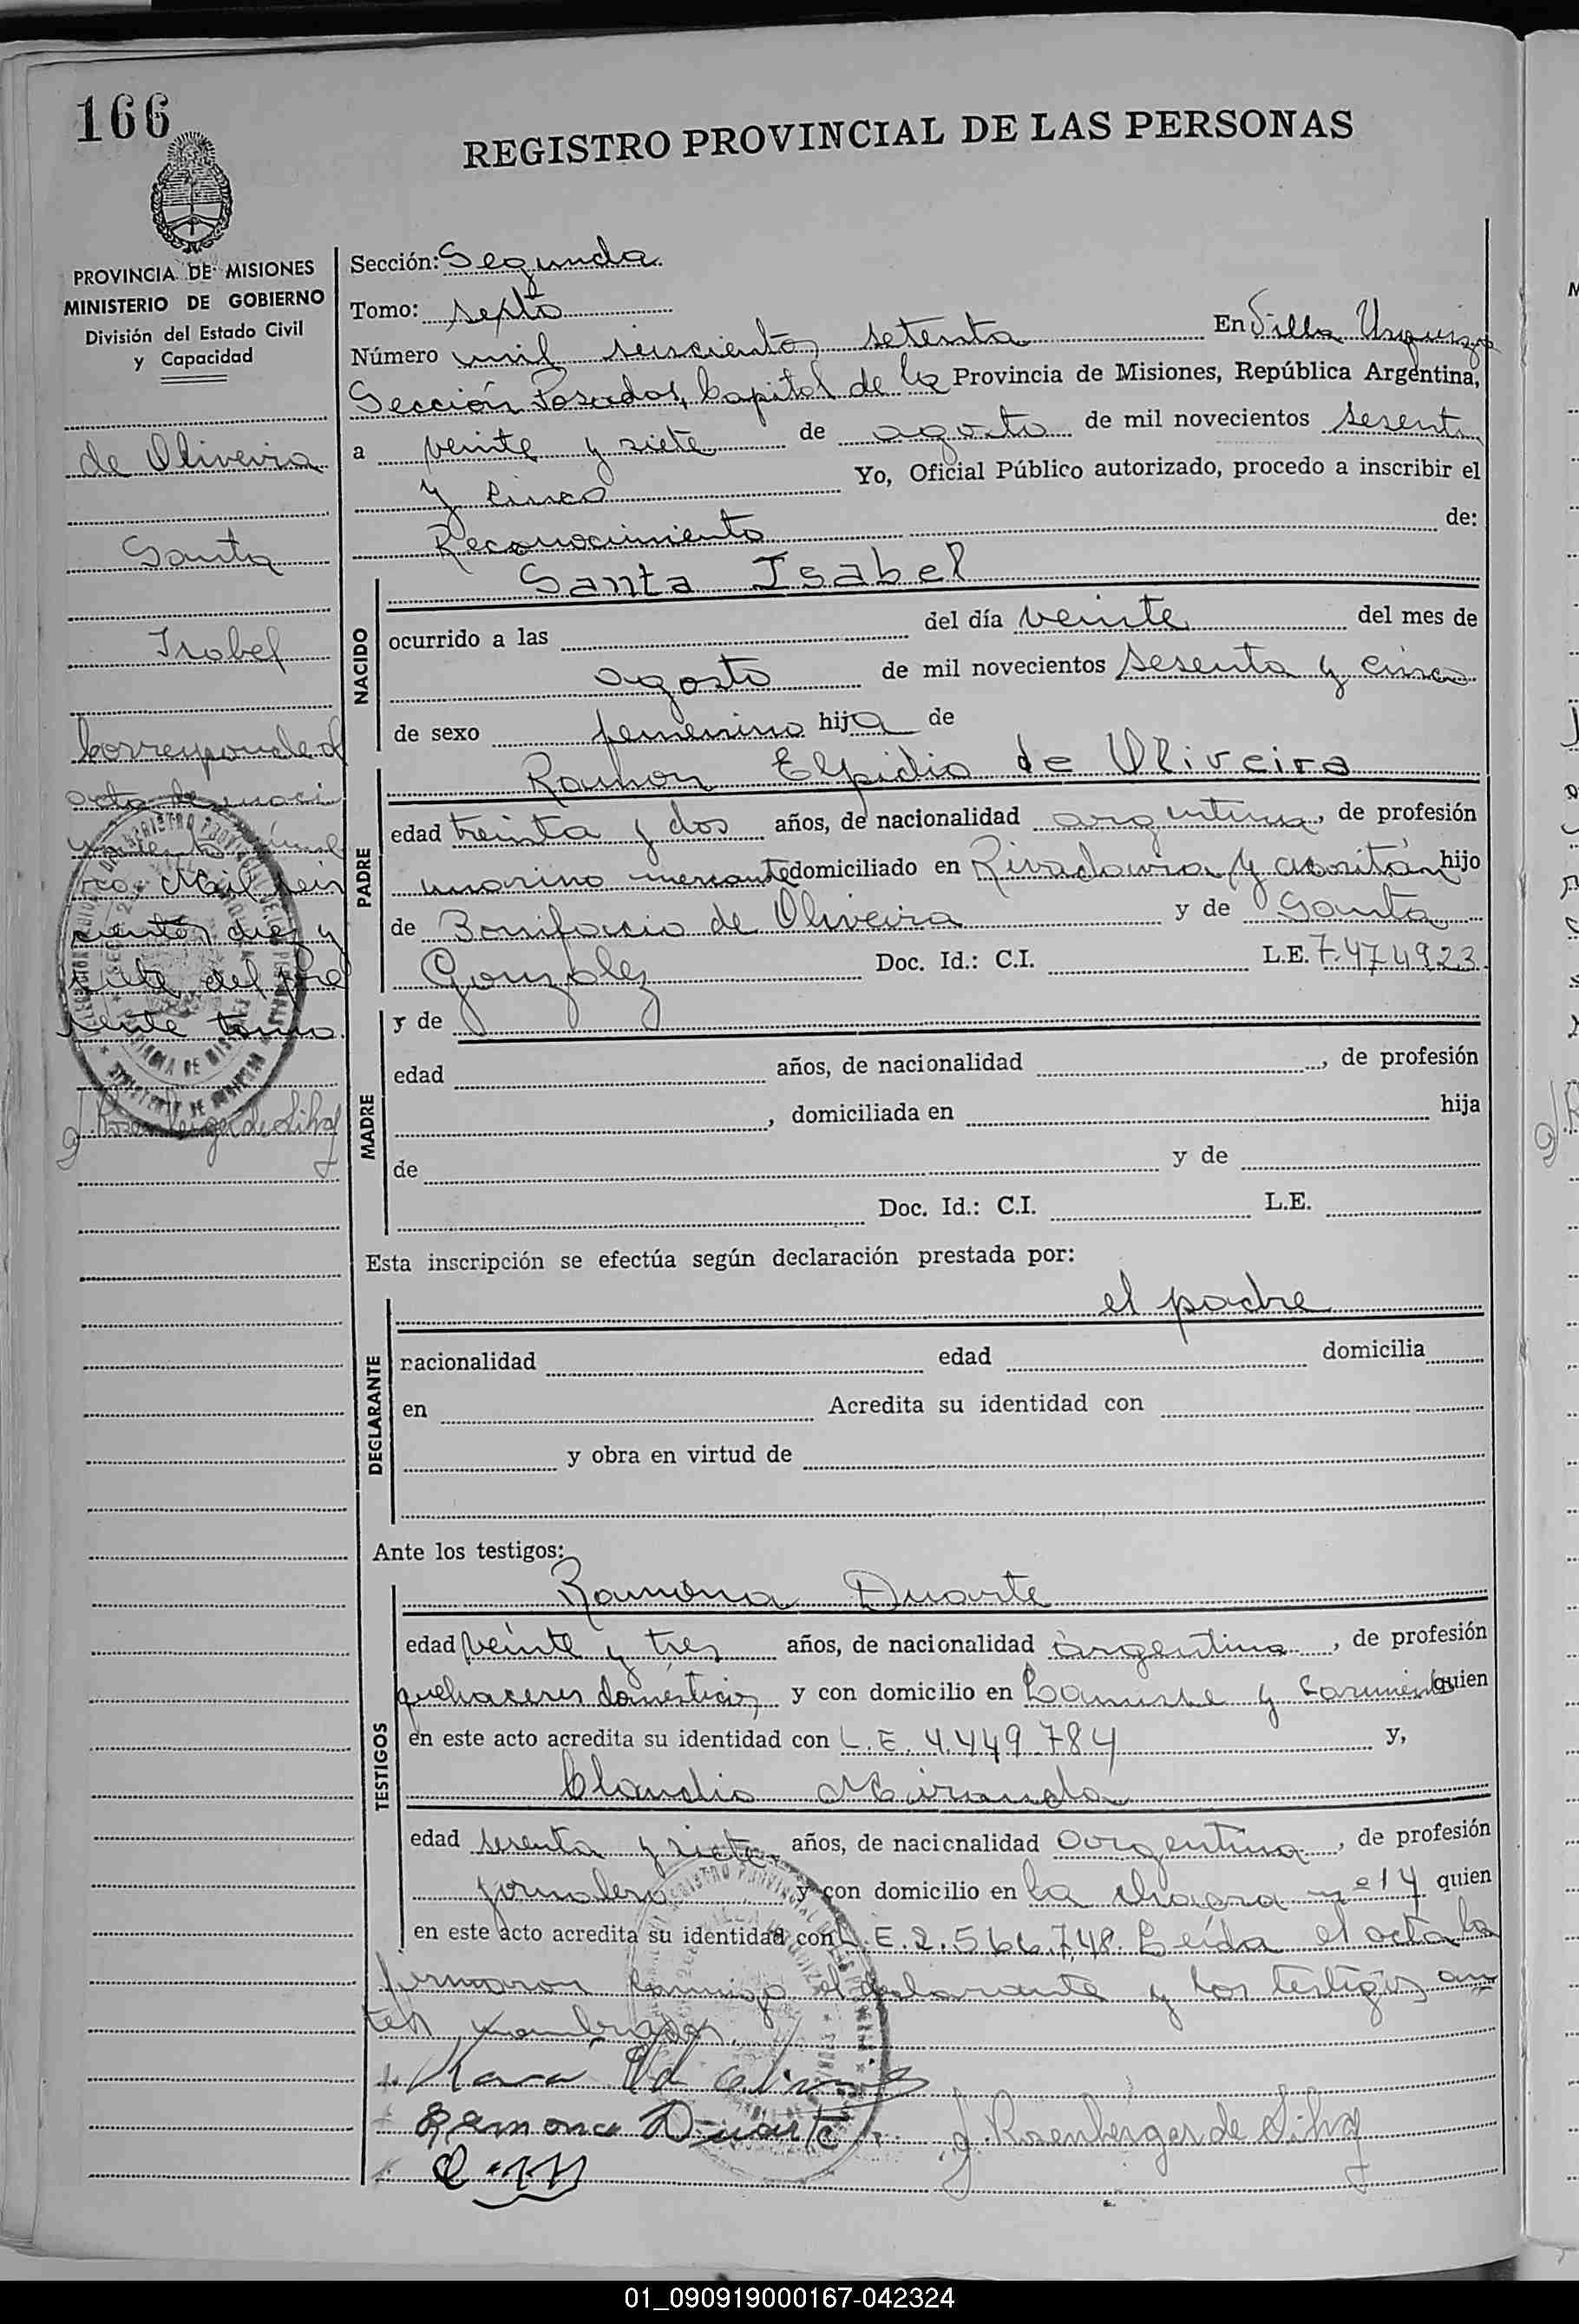 166
REGISTRO PROVINCIAL DE LAS PERSONAS
PROVINCIA DE MISIONES
MINISTERIO DE GOBIERNO
División del Estado Civil
y Capacidad
de Oliveira
Santa
Isabel
Corresponde al
acta de naci
miento núme
ro Mil seis
cientos diez y
siete del pre
sente tomo.
J. Rosenberger de Silva
Sección: Segunda
Tomo: sexto
Número mil seiscientos setenta En Villa Urquiza
Sección Posadas, Capital de la Provincia de Misiones, República Argentina,
a veinte y siete de agosto de mil novecientos sesenta
y cinco Yo, Oficial Público autorizado, procedo a inscribir el
Reconocimiento de:
NACIDO
Santa Isabel
ocurrido a las del día veinte del mes de
agosto de mil novecientos sesenta y cinco
de sexo femenino hija de
PADRE
Ramon Elpidio de Oliveira
edad treinta y dos años, de nacionalidad argentina, de profesión
marino mercante domiciliado en Rivadavia y hijo
de Bonifacio de Oliveira y de Santa
Gonzalez Doc. Id.: C.I. L.E. 7.474923
MADRE
y de
edad años, de nacionalidad , de profesión
, domiciliada en hija
de y de
Doc. Id.: C.I. L.E.
Esta inscripción se efectúa según declaración prestada por:
DECLARANTE
el padre
nacionalidad edad domicilia
en Acredita su identidad con
y obra en virtud de
Ante los testigos:
TESTIGOS
Ramona Duarte
edad veinte y tres años, de nacionalidad argentina, de profesión
quehaceres domésticos y con domicilio en y Sarmiento quien
en este acto acredita su identidad con L.E. 4.449.784 y,
Claudio Miranda
edad sesenta y siete años, de nacionalidad argentina, de profesión
jornalero y con domicilio en la chacra nº 14 quien
en este acto acredita su identidad con L.E. 2.566.748. Leída el acta la
firmaron conmigo el declarante y los testigos an
tes nombrados.
Ramona Duarte
J. Rosenberger de Silva
01_090919000167-042324